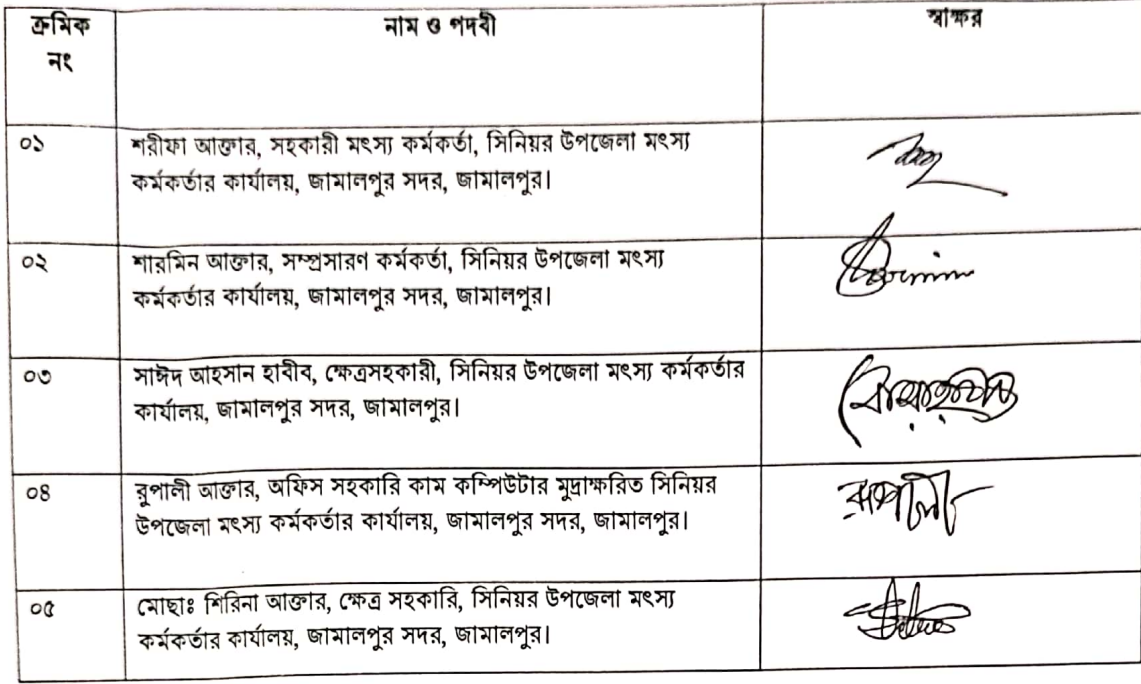 ক্রমিক নং নাম ও পদবী স্বাক্ষর
০১ শরীফা আক্তার, সহকারী মৎস্য কর্মকর্তা, সিনিয়র উপজেলা মৎস্য
কর্মকর্তার কার্যালয়, জামালপুর সদর, জামালপুর।
০২ শারমিন আক্তার, সম্প্রসারণ কর্মকর্তা, সিনিয়র উপজেলা মৎস্য
কর্মকর্তার কার্যালয়, জামালপুর সদর, জামালপুর।
০৩ সাঈদ আহসান হাবীব, ক্ষেত্রসহকারী, সিনিয়র উপজেলা মৎস্য কর্মকর্তার
কার্যালয়, জামালপুর সদর, জামালপুর।
০৪ রুপালী আক্তার, অফিস সহকারি কাম কম্পিউটার মুদ্রাক্ষরিত সিনিয়র
উপজেলা মৎস্য কর্মকর্তার কার্যালয়, জামালপুর সদর, জামালপুর।
রুপালী
০৫ মোছাঃ শিরিনা আক্তার, ক্ষেত্র সহকারি, সিনিয়র উপজেলা মৎস্য
কর্মকর্তার কার্যালয়, জামালপুর সদর, জামালপুর।